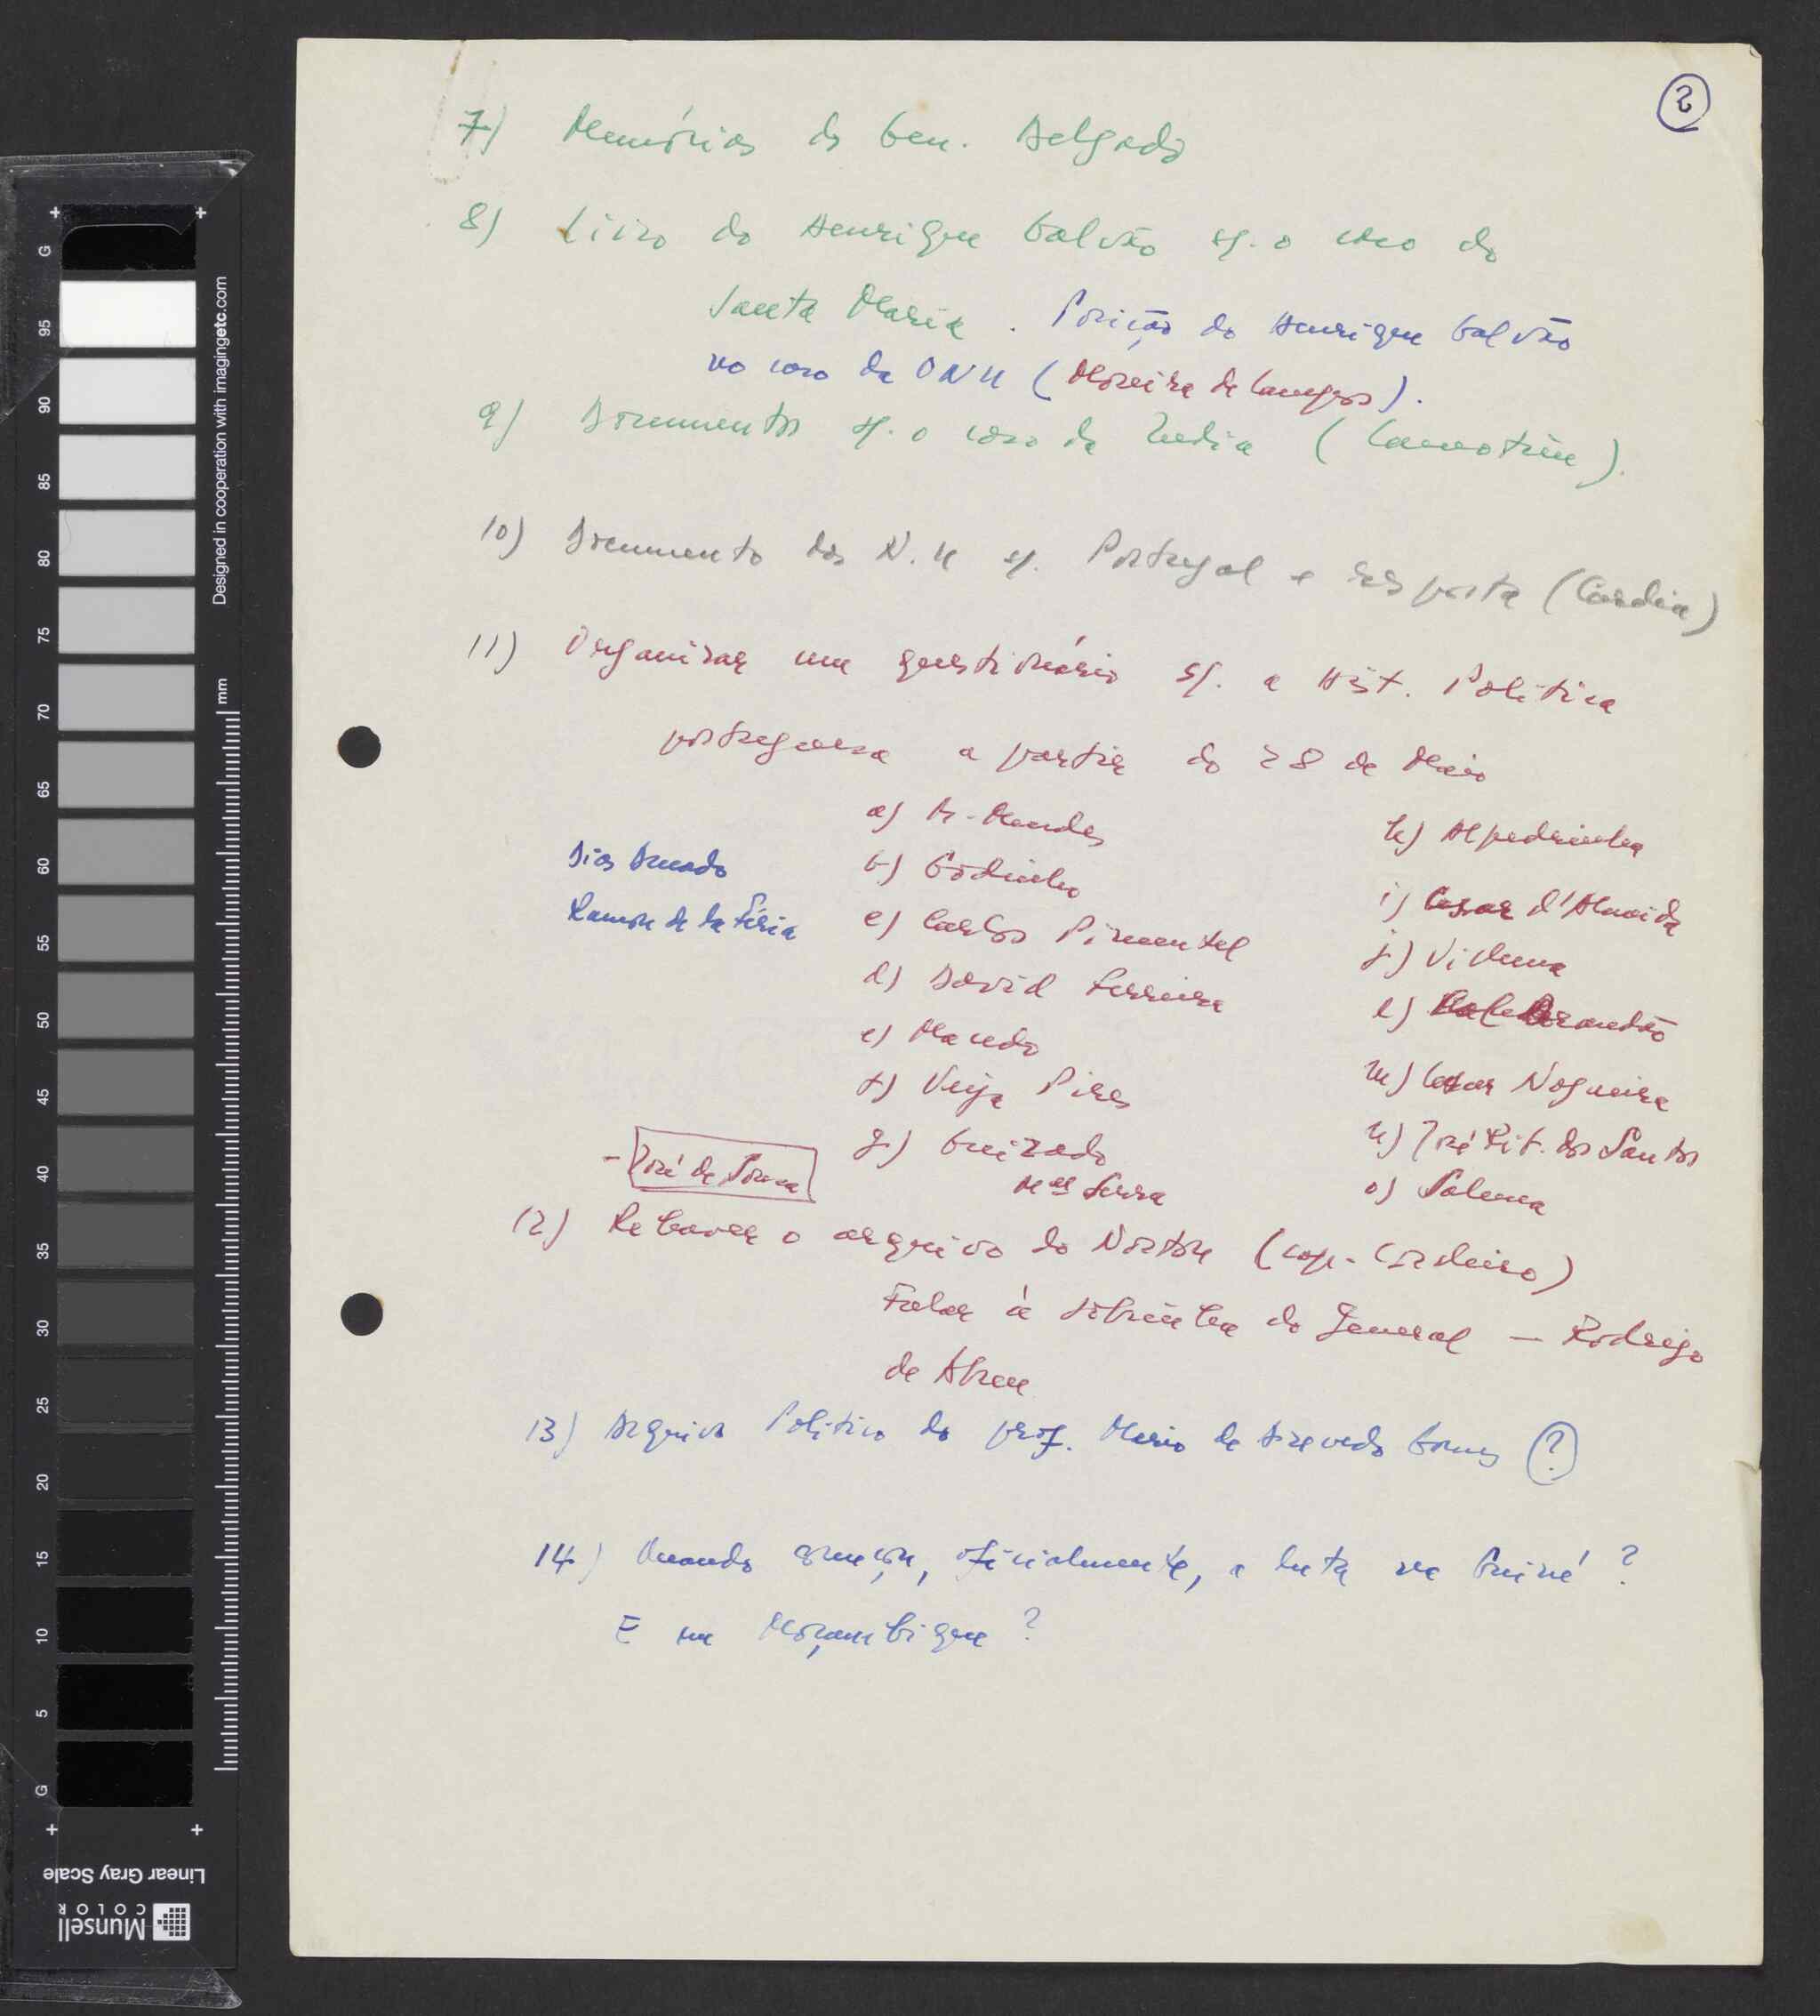 2
7) Memórias do Gen. Delgado
8) Livro do Henrique Galvão s/. o caso do
Santa Maria. Posição do Henrique Galvão
no caso da ONU (Moreira de Campos).
9) Documentos s/. o caso da India (Camotim).
10) Documento das N.U s/. Portugal e resposta (Cardia)
11) Organizar um questionário s/. a Hist. Politica
portuguesa a partir do 28 de Maio
a) A. Mendes
b) Godinho
c) Carlos Pimentel
d) David Ferreira
e) Macedo
f) Veiga Pires
g) Guizado
Serra
h) Alpedrinha
i) Cesar d'Almeida
j) Vilhena
l) Brandão
m) Cesar Nogueira
n) José Rib. dos Santos
o) Salema
Dias Amado
Ramon de la Féria
- José de Sousa
12) Rehaver o arquivo do Norton (cap. Cordeiro)
Falar à sobrinha do General — Rodrigo
de Abreu
13) Arquivo Politico do prof. Mario de Azevedo Gomes ?
14) Quando começou, oficialmente, a luta na Guiné?
E em Moçambique?
G
95
90
85
80
75
70
65
60
55
50
45
40
35
30
25
20
15
10
5
G
mm
Designed in cooperation with imagingetc.com
Linear Gray Scale
Munsell
COLOR